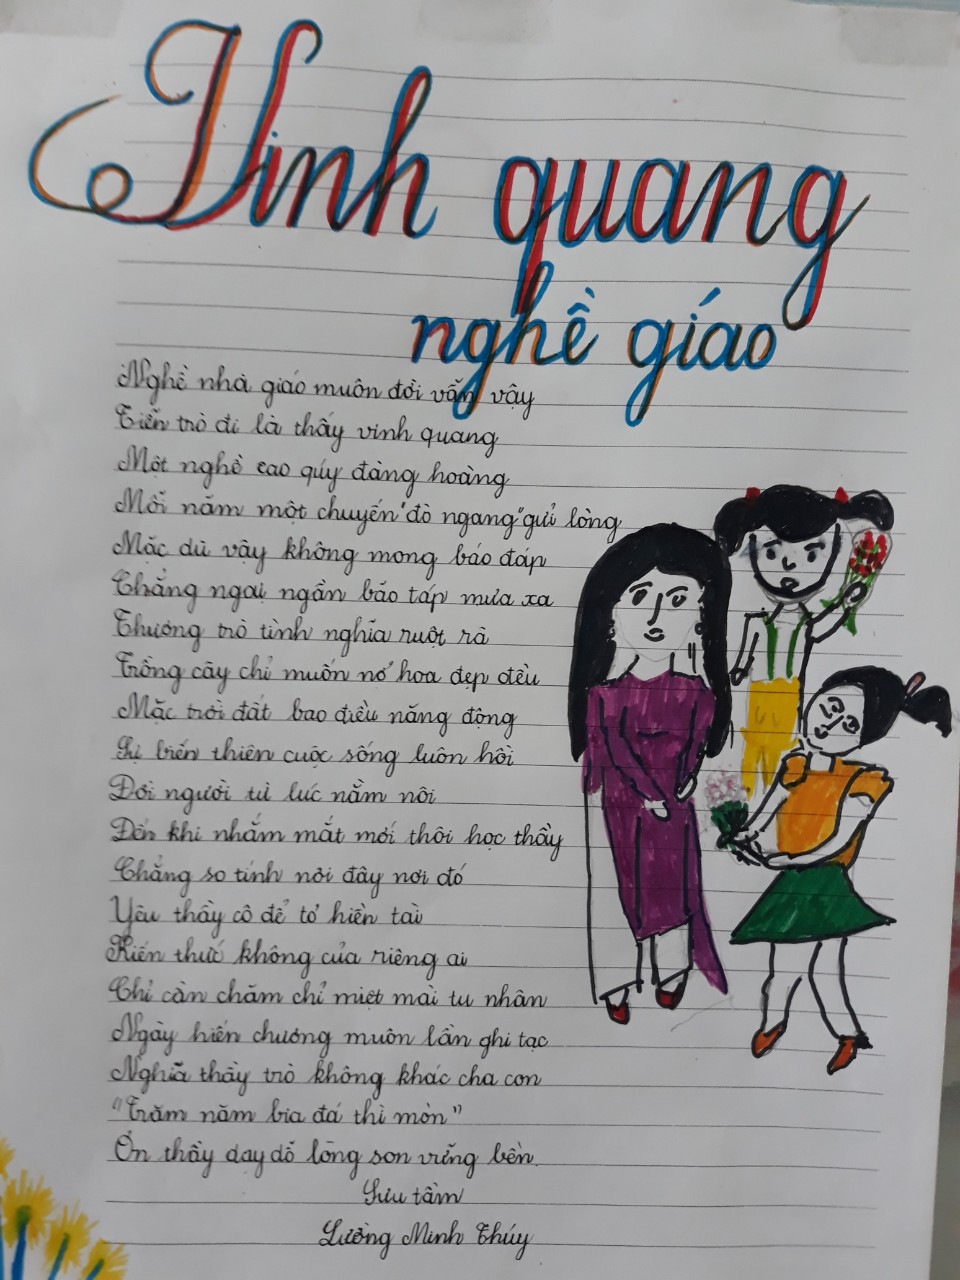 Vinh quang
nghề giáo
Nghề nhà giáo muôn đời vẫn vậy
Tiễn trò đi là thấy vinh quang
Một nghề cao qúy đàng hoàng
Mỗi năm một chuyến "đò ngang" gửi lòng
Mặc dù vậy không mong báo đáp
Chẳng ngại ngần bão táp mưa xa
Thương trò tình nghĩa ruột rà
Trồng cây chỉ muốn nở hoa đẹp đều
Mặc trời đất bao điều năng động
Sự biến thiên cuộc sống luôn hồi
Đời người từ lúc nằm nôi
Đến khi nhắm mắt mới thôi học thầy
Chẳng so tính nơi đây nơi đó
Yêu thầy cô để tỏ hiền tài
Kiến thức không của riêng ai
Chỉ cần chăm chỉ miệt mài tu nhân
Ngày hiến chương muôn lần ghi tạc
Nghĩa thầy trò không khác cha con
"Trăm năm bia đá thì mòn"
Ơn thầy dạy dỗ lòng son vững bền.
Sưu tầm
Lường Minh Thúy